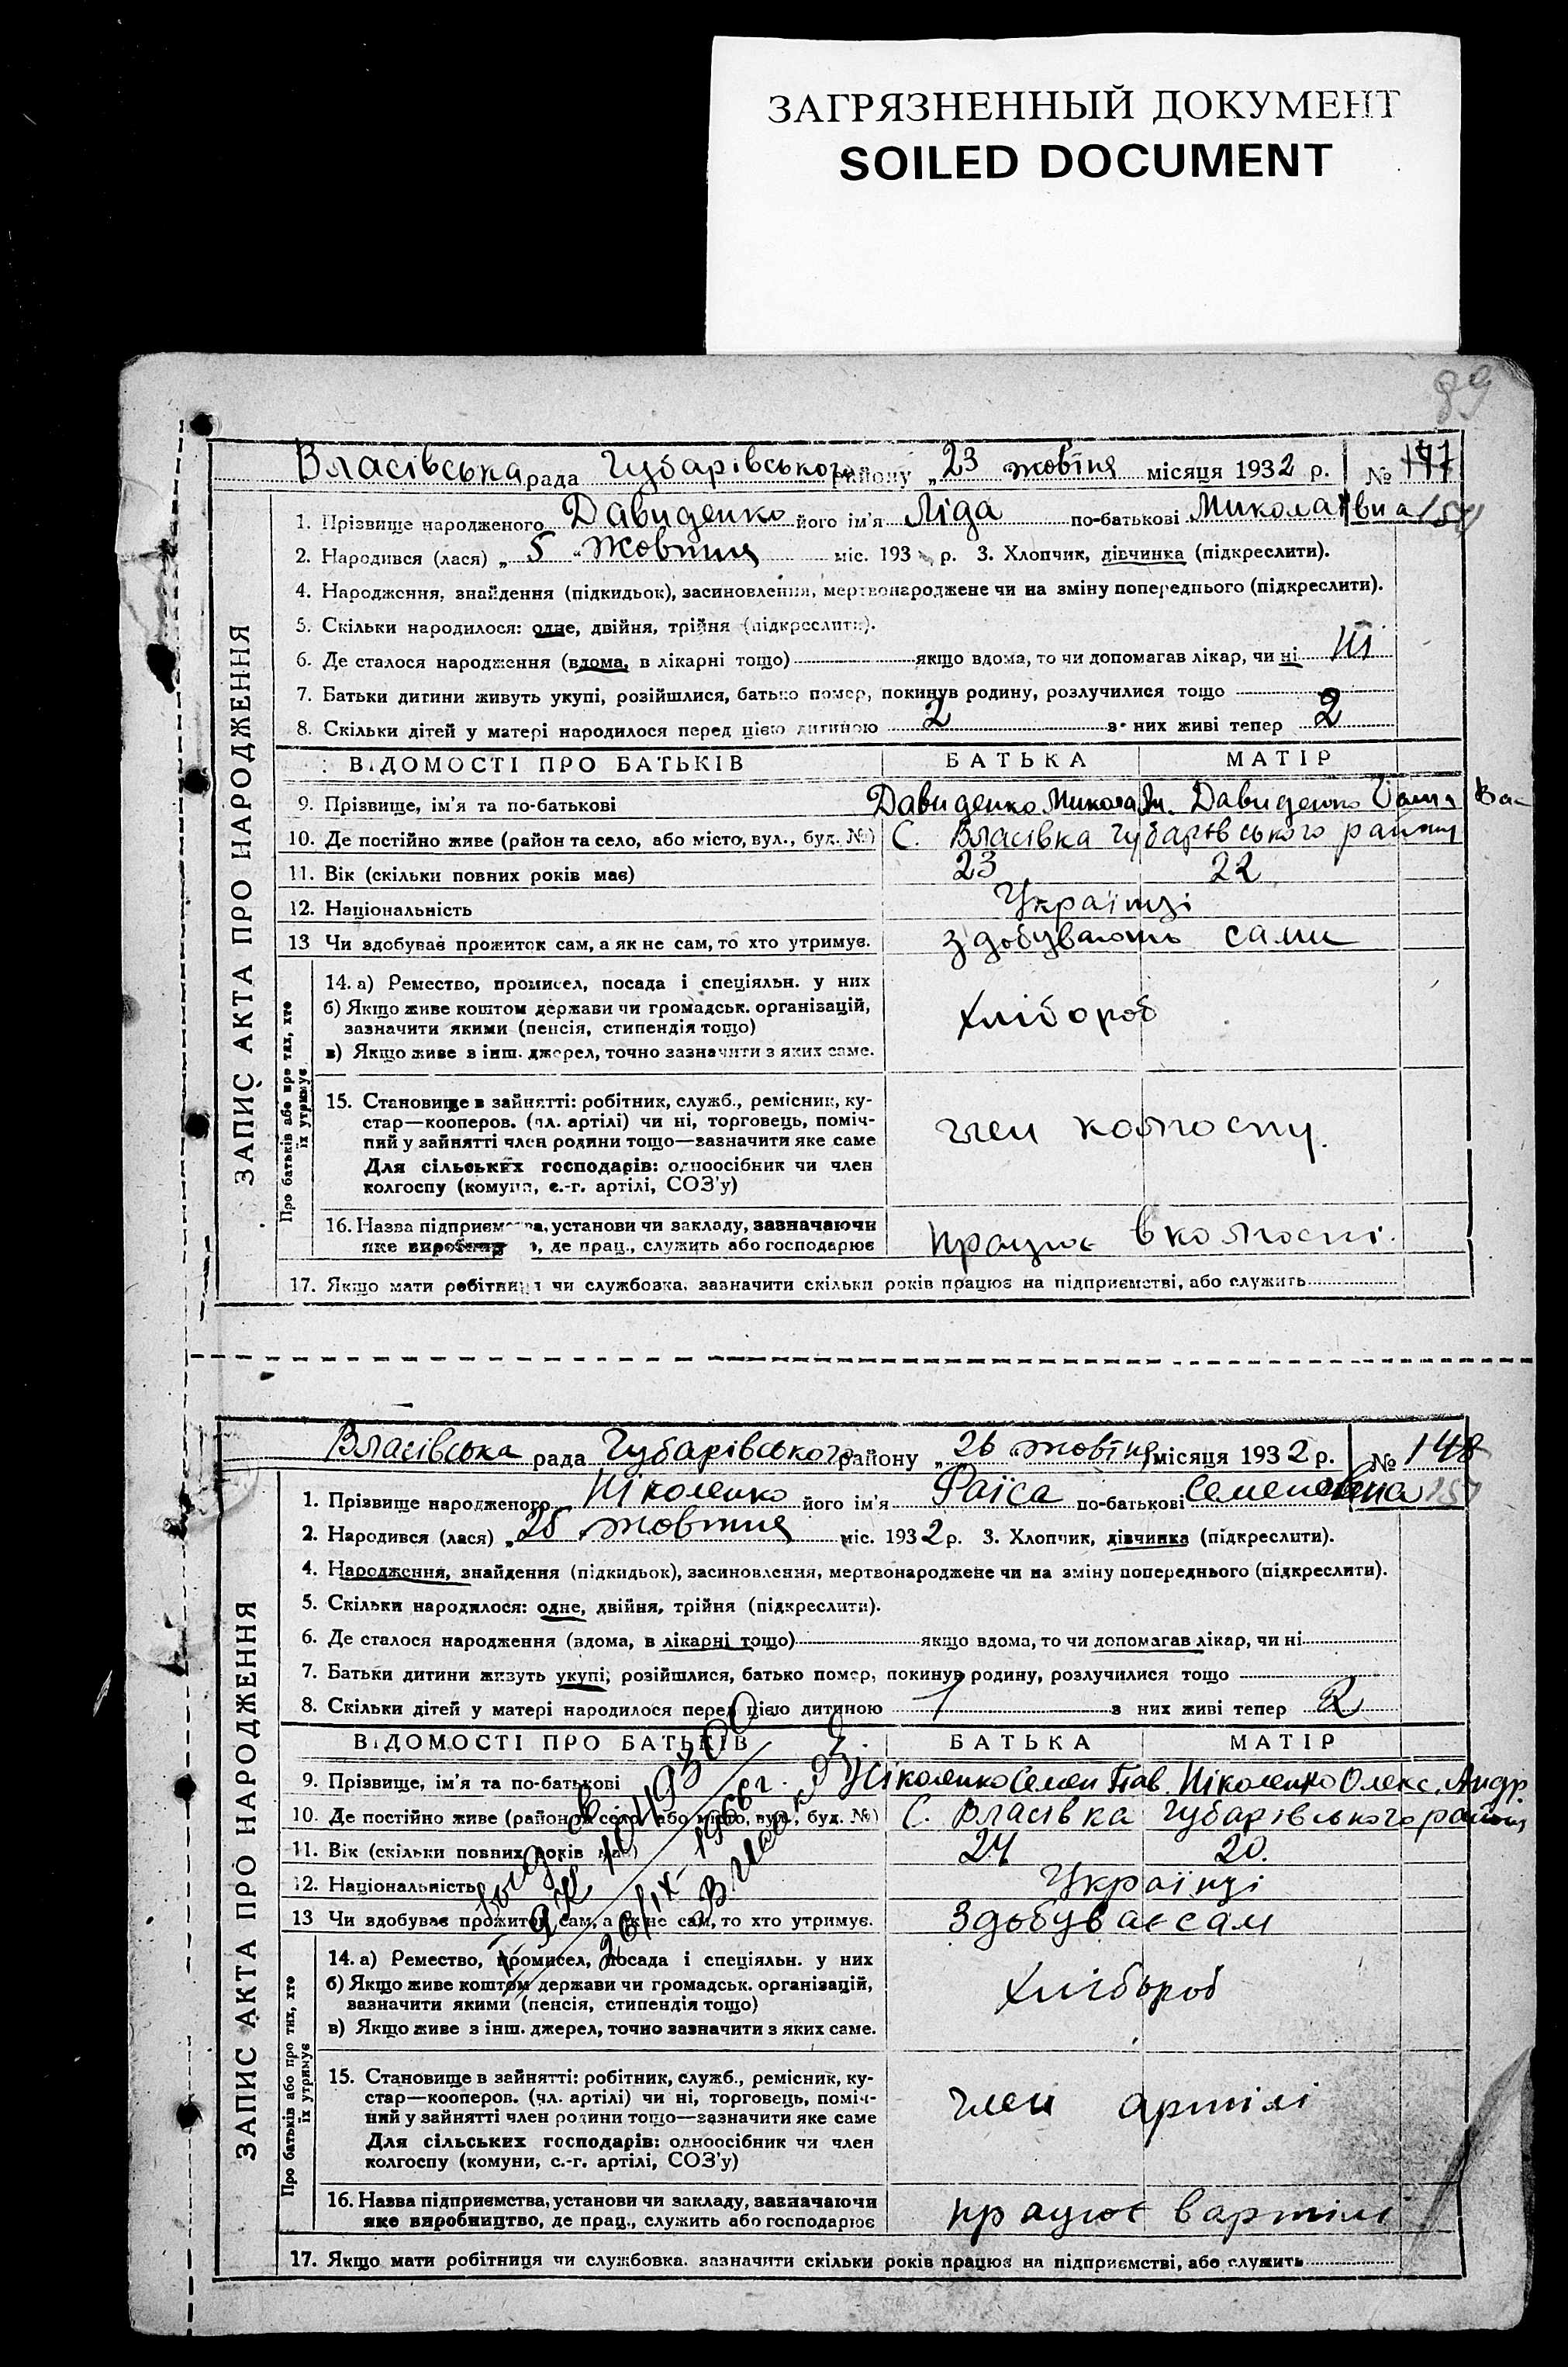 ЗАГРЯЗНЕННЫЙ ДОКУМЕНТ
SOILED DOCUMENT
89
Власівська рада Губарівського району „23 жовтня місяця 1932 р. № 147
1. Прізвище народженого Давиденко його ім’я Ліда по-батькові Миколаївна
2. Народився (лася) „5“ Жовтня міс. 193 р. 3. Хлопчик, дівчинка (підкреслити).
4. Народження, знайдення (підкидьок), засиновлення, мертвонароджене чи на зміну попереднього (підкреслити).
5. Скільки народилося: одне, двійня, трійня (підкреслити).
6. Де сталося народження (вдома, в лікарні тощо) якщо вдома, то чи допомагав лікар, чи ні ні
7. Батьки дитини живуть укупі, розійшлися, батько помер, покинув родину, розлучилися тощо
8. Скільки дітей у матері народилося перед цією дитиною 2 з них живі тепер 2
ВІДОМОСТІ ПРО БАТЬКІВ БАТЬКА МАТІР
9. Прізвище, ім’я та по-батькові Давиденко Микола Давиденко
10. Де постійно живе (район та село, або місто, вул., буд. №) С. Власівка Губарівського району
11. Вік (скільки повних років має) 23 22
12. Національність Українці
13 Чи здобував прожиток сам, а як не сам, то хто утримує. здобувають сами
14. а) Ремество, промисел, посада і спеціяльн. у них
б) Якщо живе коштом держави чи громадськ. організацій,
зазначити якими (пенсія, стипендія тощо) хлібороб
в) Якщо живе з інш. джерел, точно зазначити з яких саме.
15. Становище в зайнятті: робітник, служб., ремісник, ку-
стар—кооперов. (чл. артілі) чи ні, торговець, поміч-
ний у зайнятті член родини тощо—зазначити яке саме член колгоспу.
Для сільських господарів: одноосібник чи член
колгоспу (комуни, с.-г. артілі, СОЗ’у)
16. Назва підприємства, установи чи закладу, зазначаючи
яке виробництво, де прац., служить або господарює працює в колгоспі.
17. Якщо мати робітниця чи службовка, зазначити скільки років працює на підприємстві, або служить
ЗАПИС АКТА ПРО НАРОДЖЕННЯ
Про батьків або про тих, хто
їх утримує
Власівська рада Губарівського району „26 жовтня місяця 1932 р. № 148
1. Прізвище народженого Ніколенко його ім’я Раїса по-батькові Семеновна
2. Народився (лася) „25 жовтня міс. 1932 р. 3. Хлопчик, дівчинка (підкреслити).
4. Народження, знайдення (підкидьок), засиновлення, мертвонароджене чи на зміну попереднього (підкреслити).
5. Скільки народилося: одне, двійня, трійня (підкреслити).
6. Де сталося народження (вдома, в лікарні тощо) якщо вдома, то чи допомагав лікар, чи ні
7. Батьки дитини живуть укупі, розійшлися, батько помер, покинув родину, розлучилися тощо
8. Скільки дітей у матері народилося перед цією дитиною 1 з них живі тепер 2
ВІДОМОСТІ ПРО БАТЬКІВ БАТЬКА МАТІР
9. Прізвище, ім’я та по-батькові Ніколенко Семен Пав. Ніколенко Олекс. Андр.
10. Де постійно живе (район та село, або місто, вул., буд. №) С. Власівка Губарівського району
11. Вік (скільки повних років має) 24 20.
12. Національність Українці
13 Чи здобував прожиток сам, а як не сам, то хто утримує. Здобуває сам
14. а) Ремество, промисел, посада і спеціяльн. у них
б) Якщо живе коштом держави чи громадськ. організацій,
зазначити якими (пенсія, стипендія тощо) хлібороб
в) Якщо живе з інш. джерел, точно зазначити з яких саме.
15. Становище в зайнятті: робітник, служб., ремісник, ку-
стар—кооперов. (чл. артілі) чи ні, торговець, поміч-
ний у зайнятті член родини тощо—зазначити яке саме член артілі
Для сільських господарів: одноосібник чи член
колгоспу (комуни, с.-г. артілі, СОЗ’у)
16. Назва підприємства, установи чи закладу, зазначаючи
яке виробництво, де прац., служить або господарює працює в артілі
17. Якщо мати робітниця чи службовка, зазначити скільки років працює на підприємстві, або служить
ЗАПИС АКТА ПРО НАРОДЖЕННЯ
Про батьків або про тих, хто
їх утримує